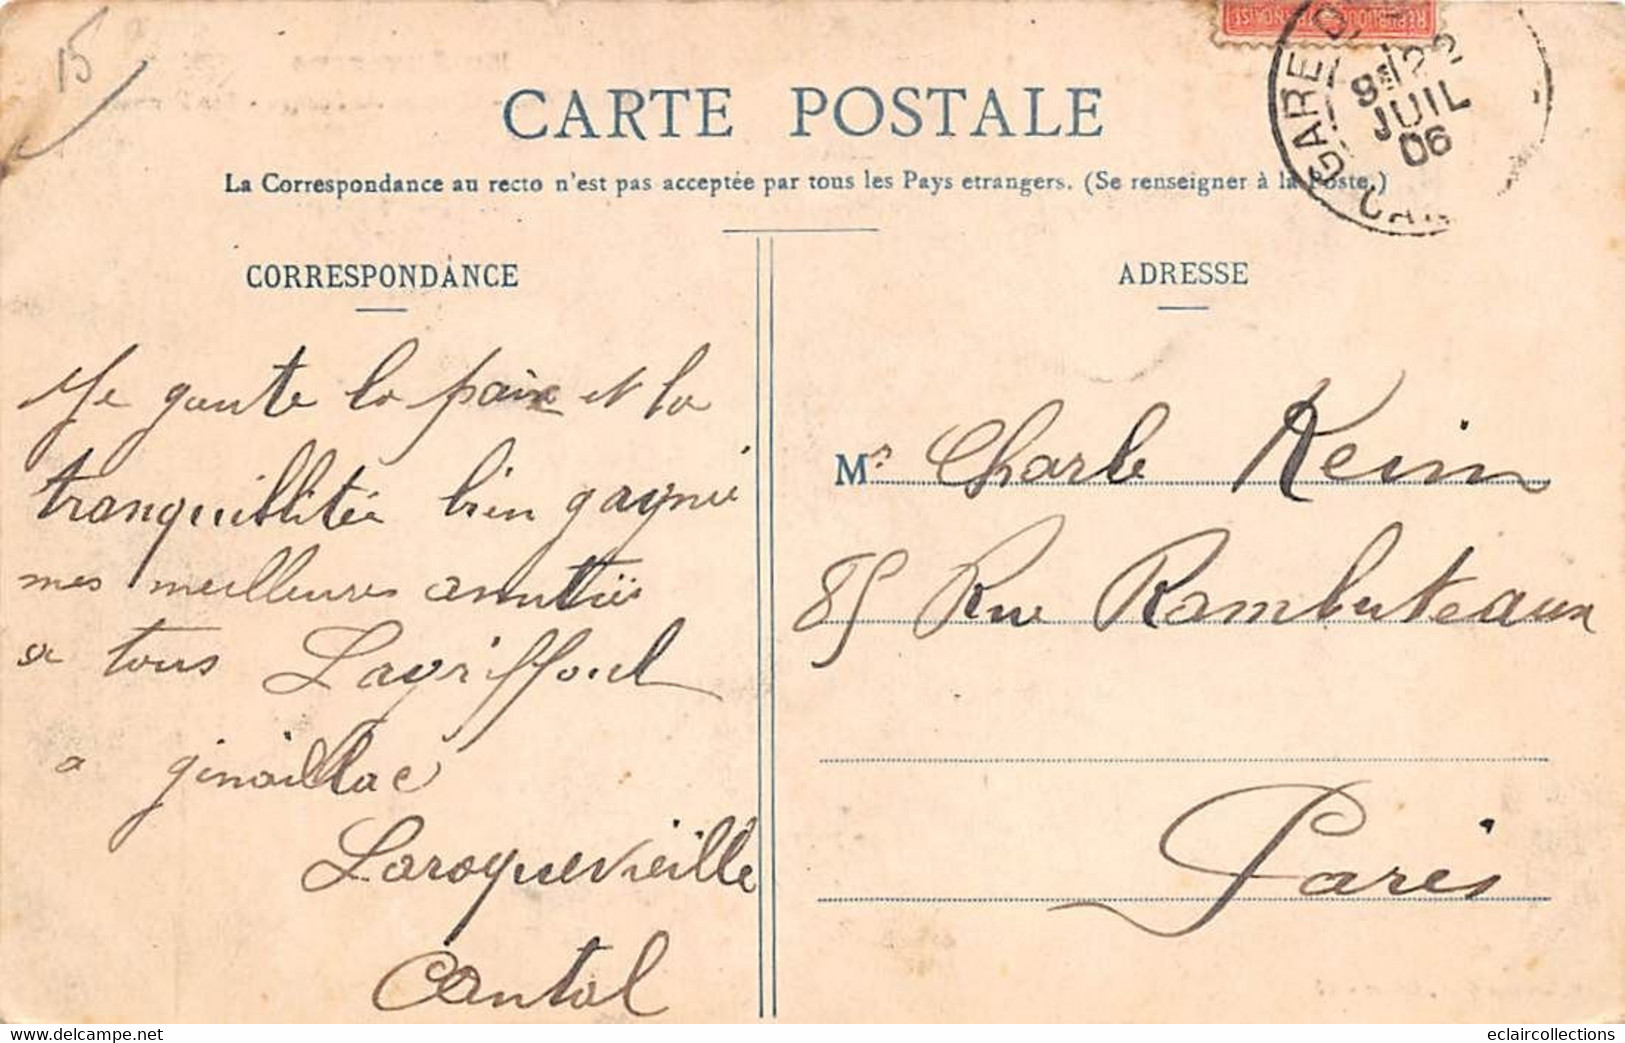 15
RÉPUBLIQUE FRANÇAISE
GARE D
9 22
JUIL
06
CAN
CARTE POSTALE
La Correspondance au recto n'est pas acceptée par tous les Pays etrangers. (Se renseigner à la Poste.)
CORRESPONDANCE
ADRESSE
Je goute la paix et la
tranquillitée bien gagnié
mes meilleures amitiés
a tous Lagriffoul
a
Laroquevieille
Cantal
Mr Charle Kein
85 Rue Rambuteaux
Paris
eclaircollections